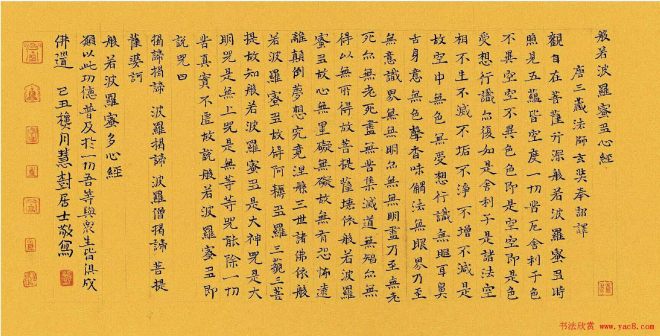 般若波羅蜜多心經
唐三藏法師玄奘奉詔譯
觀自在菩薩行深般若波羅蜜多時
照見五蘊皆空度一切苦厄舍利子色
不異空空不異色色即是空空即是色
受想行識亦復如是舍利子是諸法空
相不生不滅不垢不淨不增不減是
故空中無色無受想行識無眼耳鼻
舌身意無色聲香味觸法無眼界乃至
無意識界無無明亦無無明盡乃至無老
死亦無老死盡無苦集滅道無智亦無
得以無所得故菩提薩埵依般若波羅
蜜多故心無罣礙無罣礙故無有恐怖遠
離顛倒夢想究竟涅般三世諸佛依般
若波羅蜜多故得阿耨多羅三藐三菩
提故知般若波羅蜜多是大神咒是大
明咒是無上咒是無等等咒能除一切
苦真實不虛故說般若波羅蜜多即
說咒曰
揭諦揭諦 波羅揭諦 波羅僧揭諦 菩提
薩婆訶
般若波羅蜜多心經
願以此功德普及於一切吾等與眾生皆俱成
佛道 己丑 月慧 居士敬寫
书法欣赏
www.yac8.com